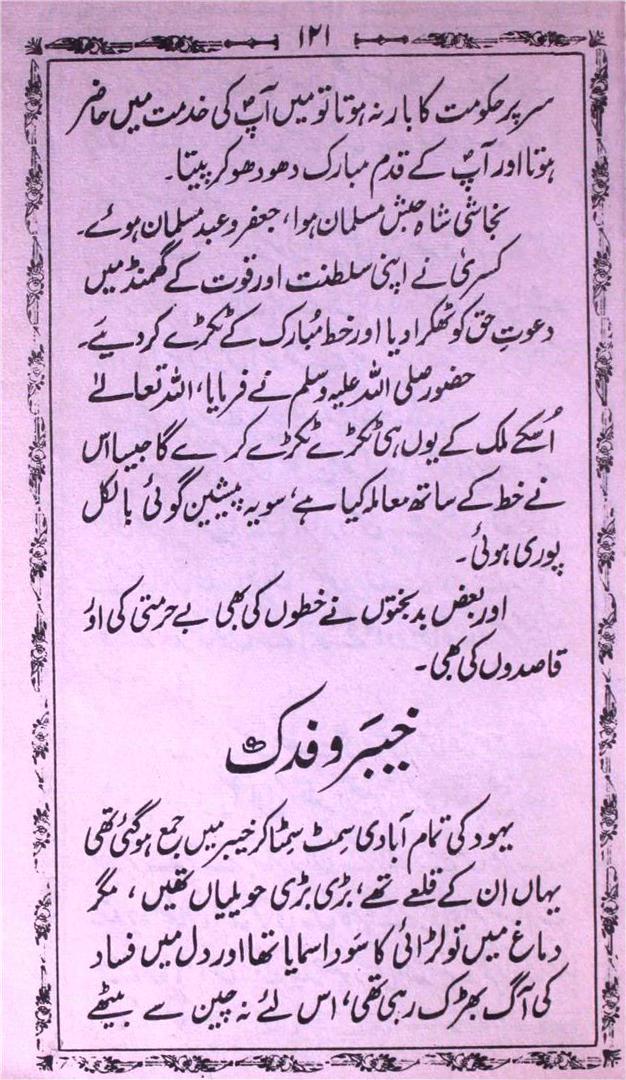 ۱۲۱
سر پر حکومت کا بار نہ ہوتا تو میں آپؐ کی خدمت میں حاضر
ہوتا اور آپؐ کے قدم مبارک دھو دھو کر پیتا۔
نجاشی شاہ حبش مسلمان ہوا، جعفر و عبد مسلمان ہوئے۔
کسریٰ نے اپنی سلطنت اور قوت کے گھمنڈ میں
دعوتِ حق کو ٹھکرا دیا اور خط مُبارک کے ٹکڑے کر دیئے۔
حضور صلی اللہ علیہ وسلم نے فرمایا، اللہ تعالےٰ
اُسکے ملک کے یوں ہی ٹکڑے ٹکڑے کرے گا جیسا اس
نے خط کے ساتھ معاملہ کیا ہے، سو یہ پیشین گوئی بالکل
پوری ہوئی۔
اور بعض بدبختوں نے خطوں کی بھی بے حرمتی کی اوُ
قاصدوں کی بھی۔
خیبَر و فدک
یہود کی تمام آبادی سِمٹ سِمٹا کر خیبر میں جمع ہو گئی تھی
یہاں ان کے قلعے تھے، بڑی بڑی حویلیاں تھیں، مگر
دماغ میں تو لڑائی کا سَودا سمایا تھا اور دل میں فساد
کی آگ بھڑک رہی تھی، اس لئے نہ چین سے بیٹھے